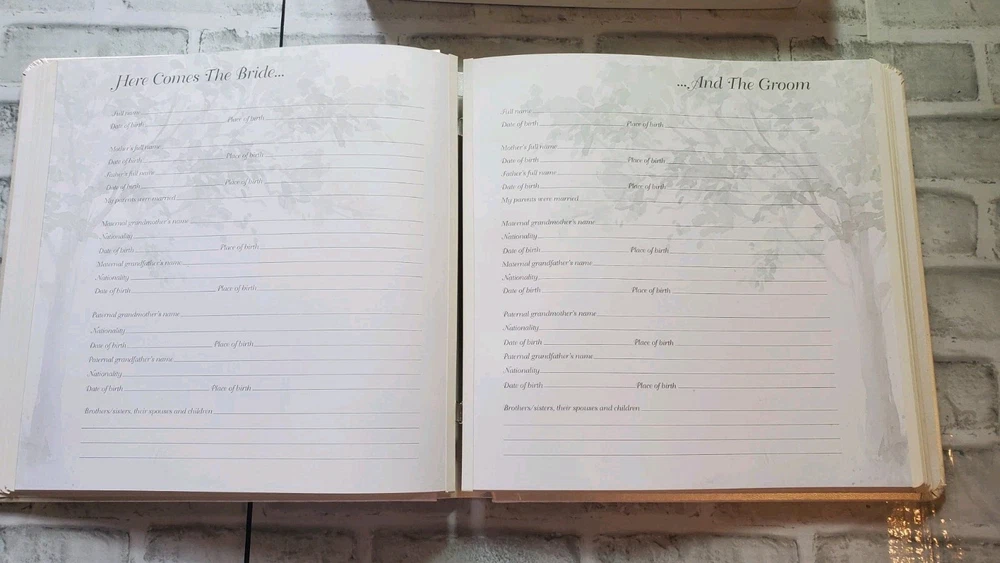 Here Comes The Bride...
Full name
Date of birth Place of birth
Mother's full name
Date of birth Place of birth
Father's full name
Date of birth Place of birth
My parents were married
Maternal grandmother's name
Nationality
Date of birth Place of birth
Maternal grandfather's name
Nationality
Date of birth Place of birth
Paternal grandmother's name
Nationality
Date of birth Place of birth
Paternal grandfather's name
Nationality
Date of birth Place of birth
Brothers/sisters, their spouses and children
...And The Groom
Full name
Date of birth Place of birth
Mother's full name
Date of birth Place of birth
Father's full name
Date of birth Place of birth
My parents were married
Maternal grandmother's name
Nationality
Date of birth Place of birth
Maternal grandfather's name
Nationality
Date of birth Place of birth
Paternal grandmother's name
Nationality
Date of birth Place of birth
Paternal grandfather's name
Nationality
Date of birth Place of birth
Brothers/sisters, their spouses and children